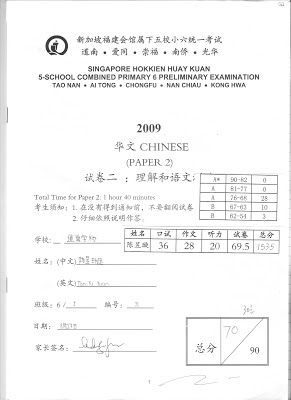 新加坡福建会馆属下五校小六统一考试
道南 • 爱同 • 崇福 • 南侨 • 光华
SINGAPORE HOKKIEN HUAY KUAN
5-SCHOOL COMBINED PRIMARY 6 PRELIMINARY EXAMINATION
TAO NAN • AI TONG • CHONGFU • NAN CHIAU • KONG HWA
2009
华文 CHINESE
(PAPER 2)
试卷二：理解和语文
A* 90-82 0
A 81-77 0
A 76-68 28
B 67-63 10
B 62-54 3
Total Time for Paper 2: 1 hour 40 minutes
考生须知：1. 在没有得到通知前，不要翻阅试卷
2. 仔细依照说明作答。
姓名 口试 作文 听力 试卷 总分
陈昱璇 36 28 20 69.5 153.5
学校：
姓名：(中文)
(英文)
班级：6 /
编号：
日期：
家长签名：
70
总分
90
1